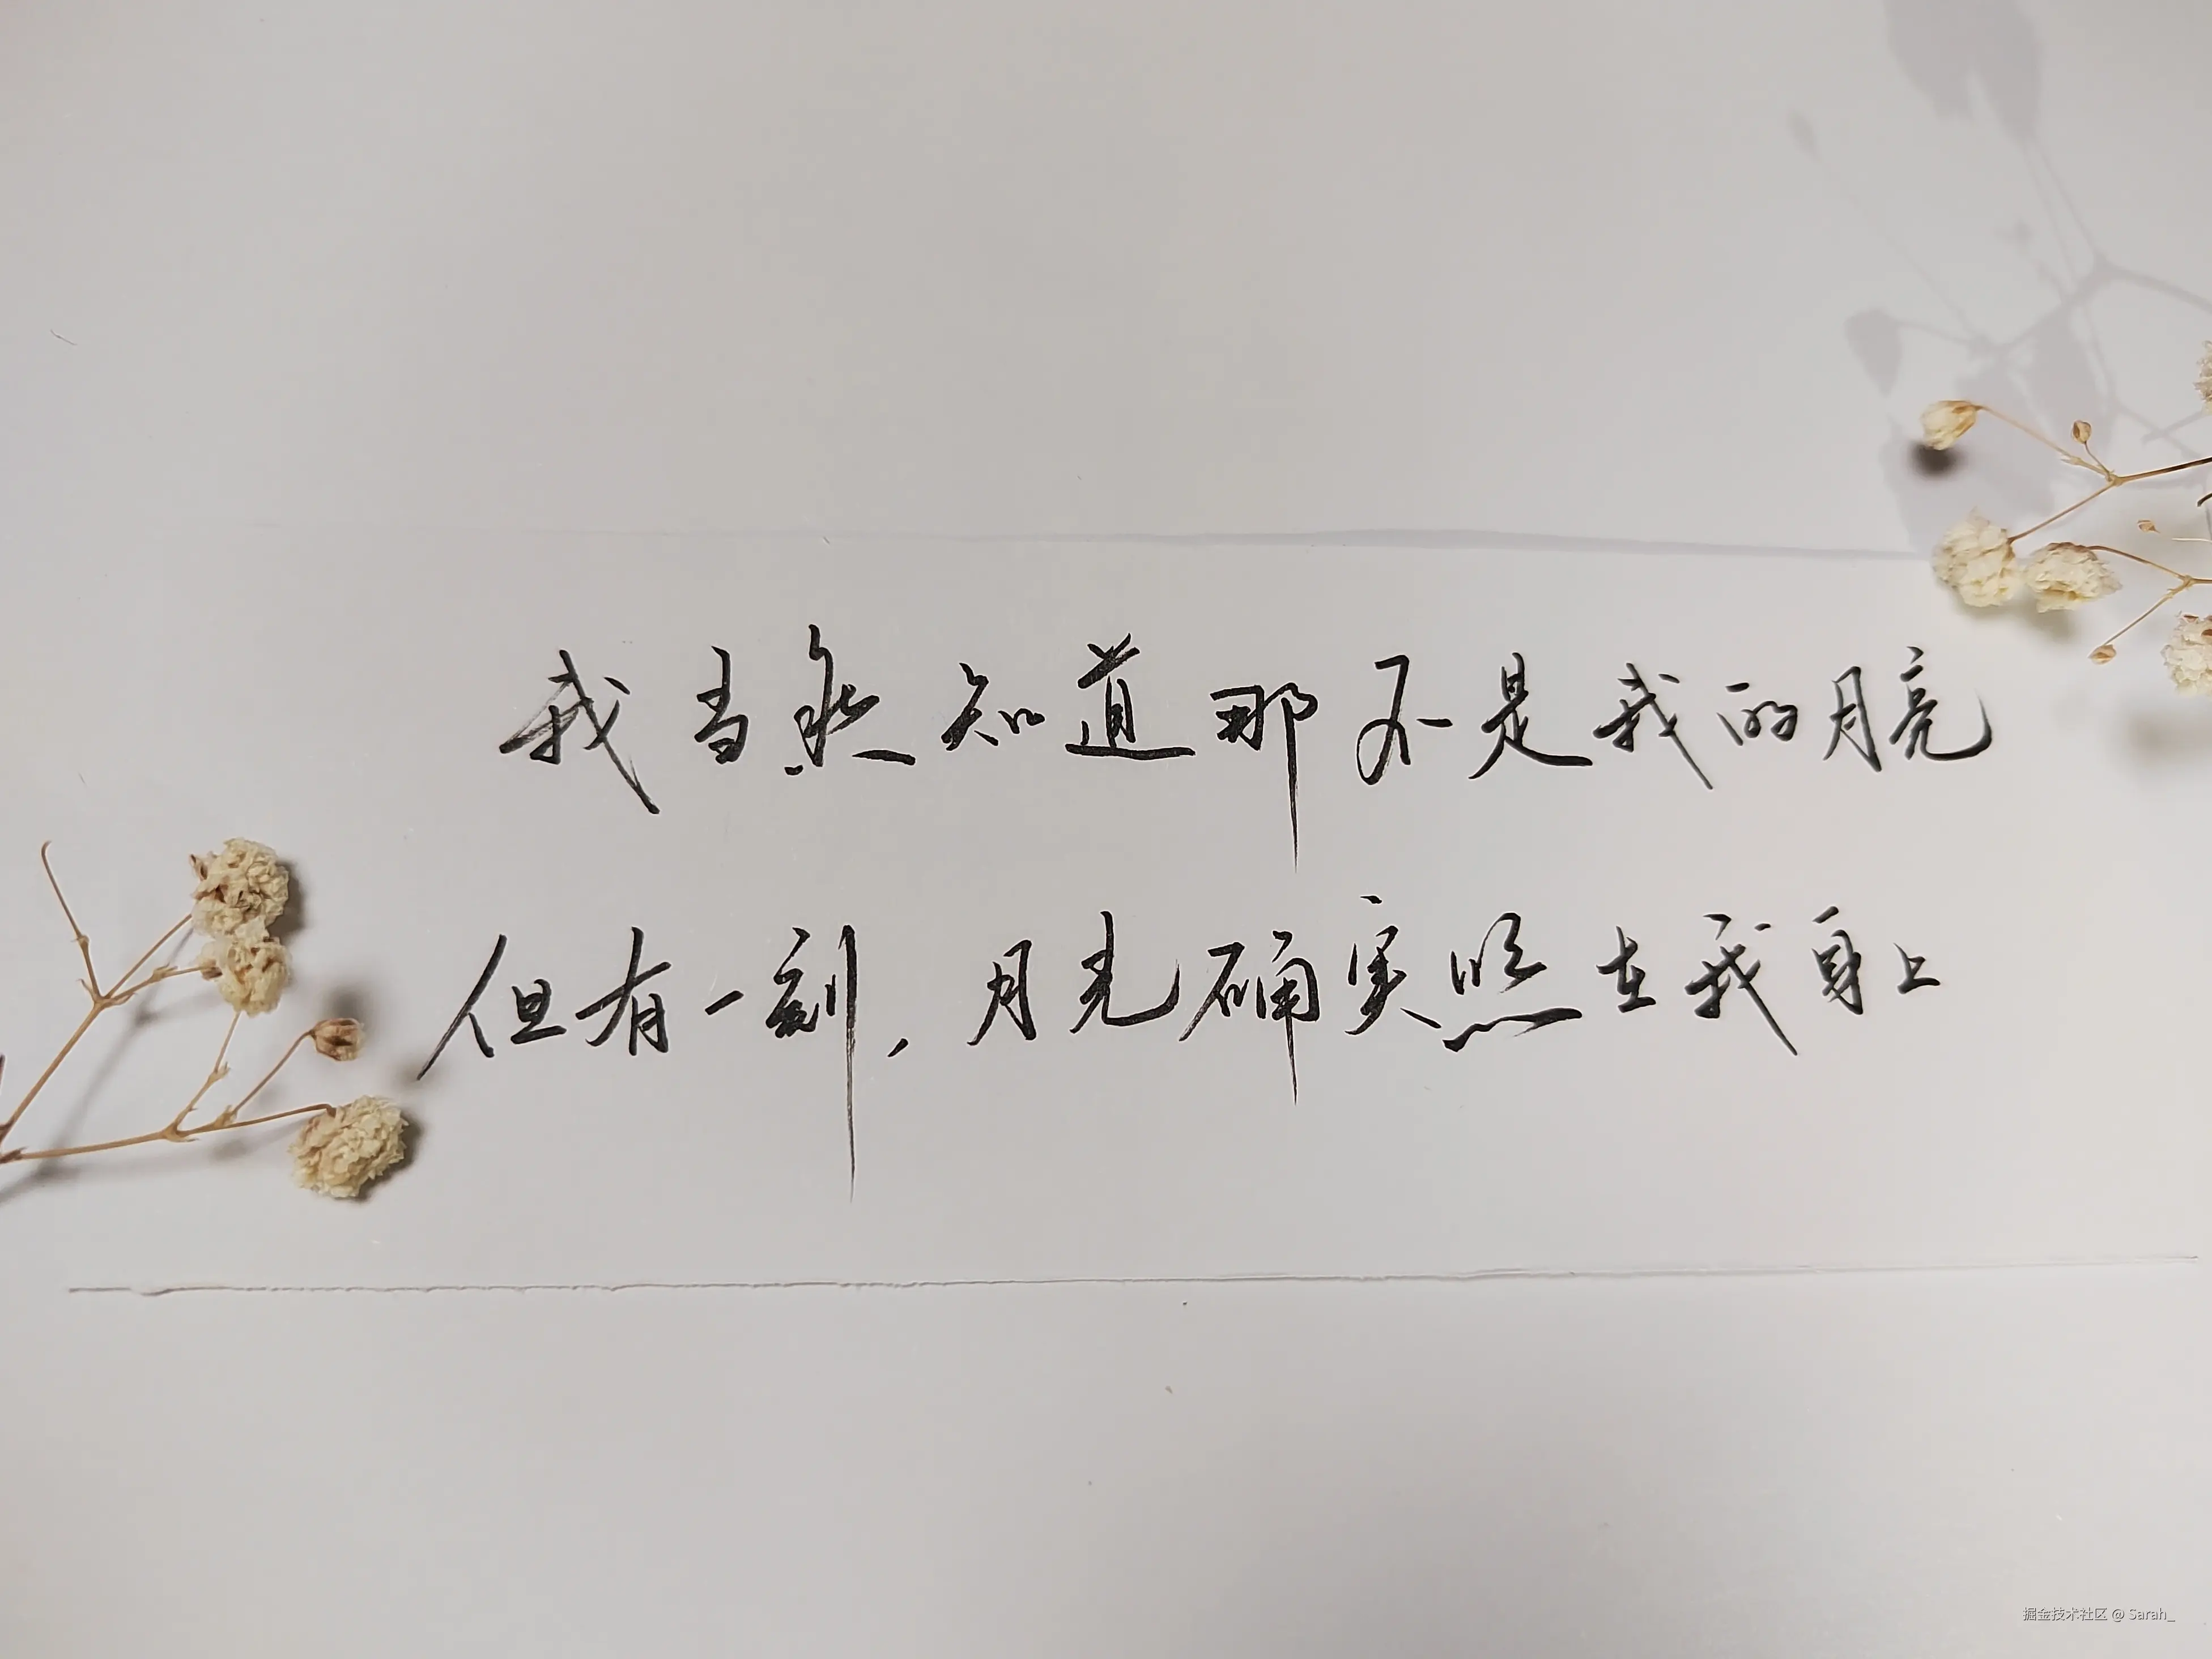 我当然知道那不是我的月亮
但有一刻，月光确实照在我身上
掘金技术社区 @ Sarah_